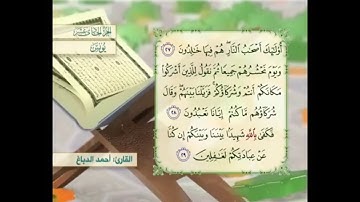 الجزء الحادي عشر
يونس
أُوْلَٰٓئِكَ أَصْحَٰبُ ٱلنَّارِ ۖ هُمْ فِيهَا خَٰلِدُونَ ٢٧
وَيَوْمَ نَحْشُرُهُمْ جَمِيعًا ثُمَّ نَقُولُ لِلَّذِينَ أَشْرَكُوا۟
مَكَانَكُمْ أَنتُمْ وَشُرَكَآؤُكُمْ ۚ فَزَيَّلْنَا بَيْنَهُمْ ۖ وَقَالَ
شُرَكَآؤُهُم مَّا كُنتُمْ إِيَّانَا تَعْبُدُونَ ٢٨
فَكَفَىٰ بِٱللَّهِ شَهِيدًۢا بَيْنَنَا وَبَيْنَكُمْ إِن كُنَّا
عَنْ عِبَادَتِكُمْ لَغَٰفِلِينَ ٢٩
القارئ: أحمد الدباغ